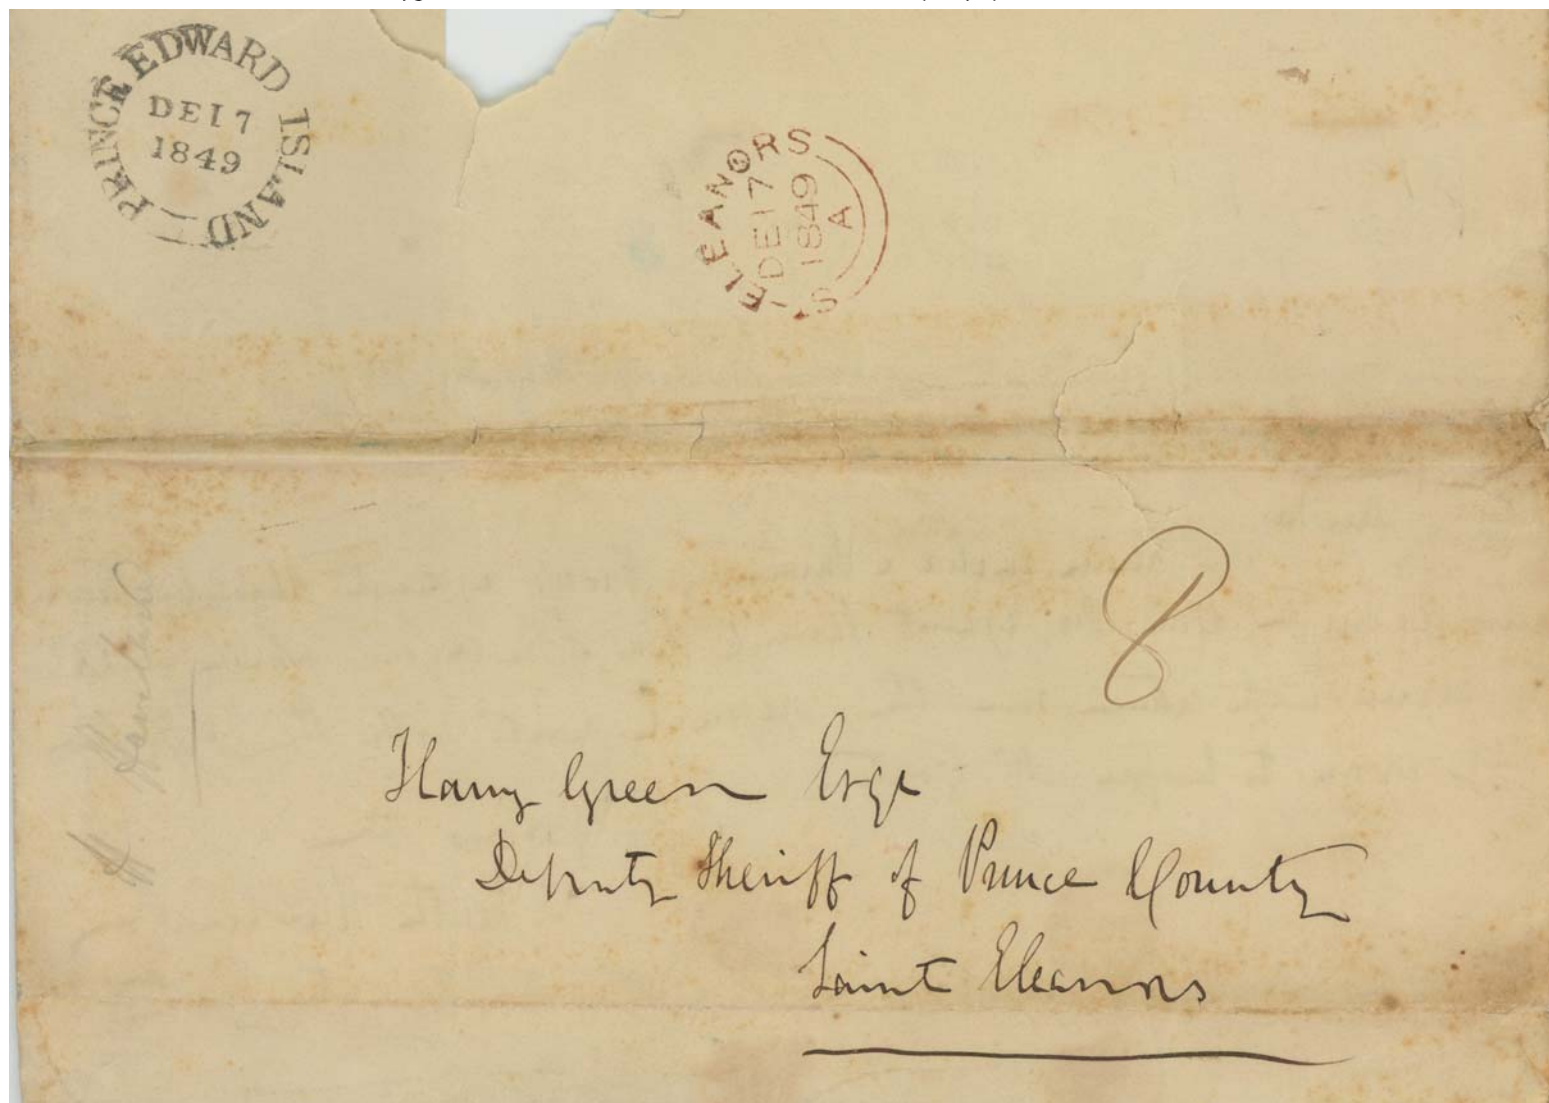 PRINCE EDWARD ISLAND
DE17
1849
ST ELEANORS
DE17
1849
A
8
Harry Green Esqr
Deputy Sheriff of Prince County
Saint Eleanors